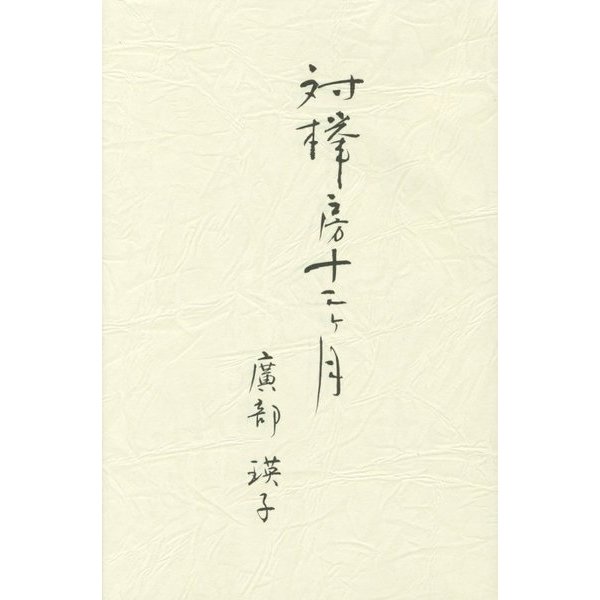 対欅房十二ヶ月
廣部 瑛子